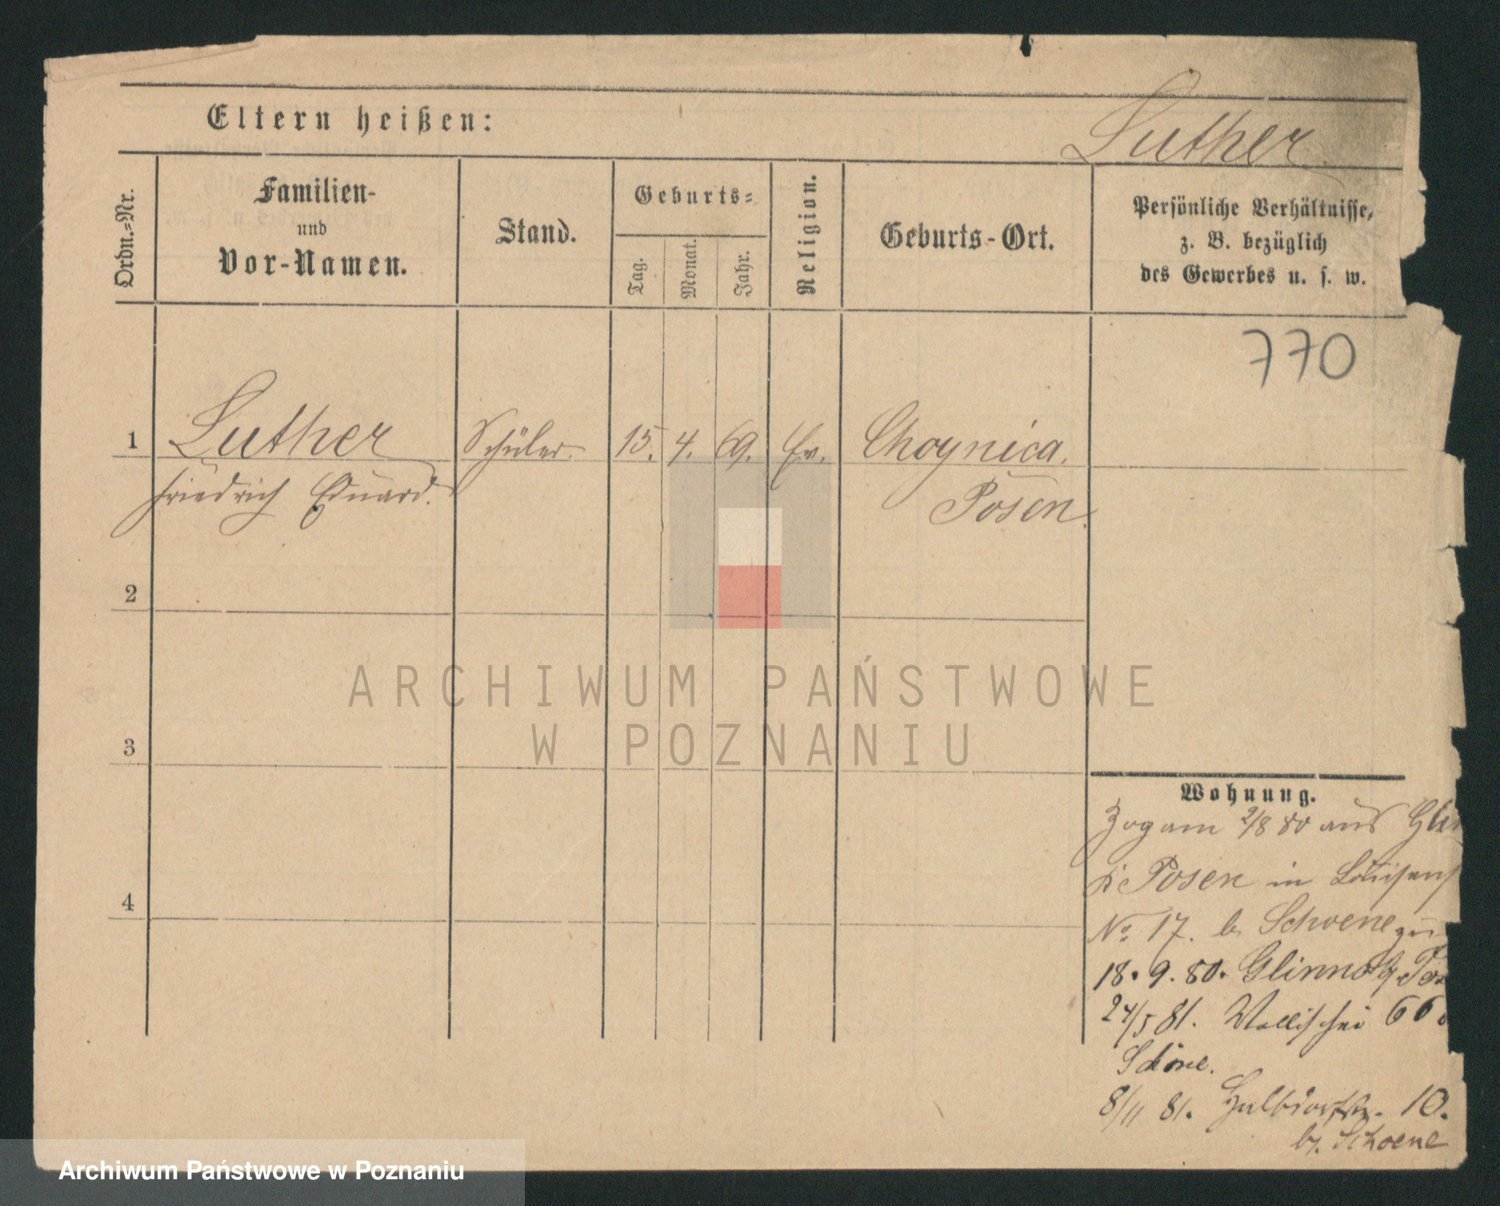 Eltern heißen:
Luther
Ordn.-Nr.
Familien-
und
Vor-Namen.
Stand.
Geburts-
Tag.
Monat.
Jahr.
Religion.
Geburts-Ort.
Persönliche Verhältnisse,
z. B. bezüglich
des Gewerbes u. s. w.
770
1
Luther
Friedrich Eduard.
Schüler
15. 4. 69. Ev.
Choynica.
Posen.
2
3
4
Wohnung.
Zog am 2/8 80 aus
Posen in
No. 17. b. Schoene
18. 9. 80. Glinno
24/5 81. Wallischei 66
Schöne.
8/11 81. Halbdorfstr. 10.
b. Schoene
ARCHIWUM PAŃSTWOWE
W POZNANIU
Archiwum Państwowe w Poznaniu